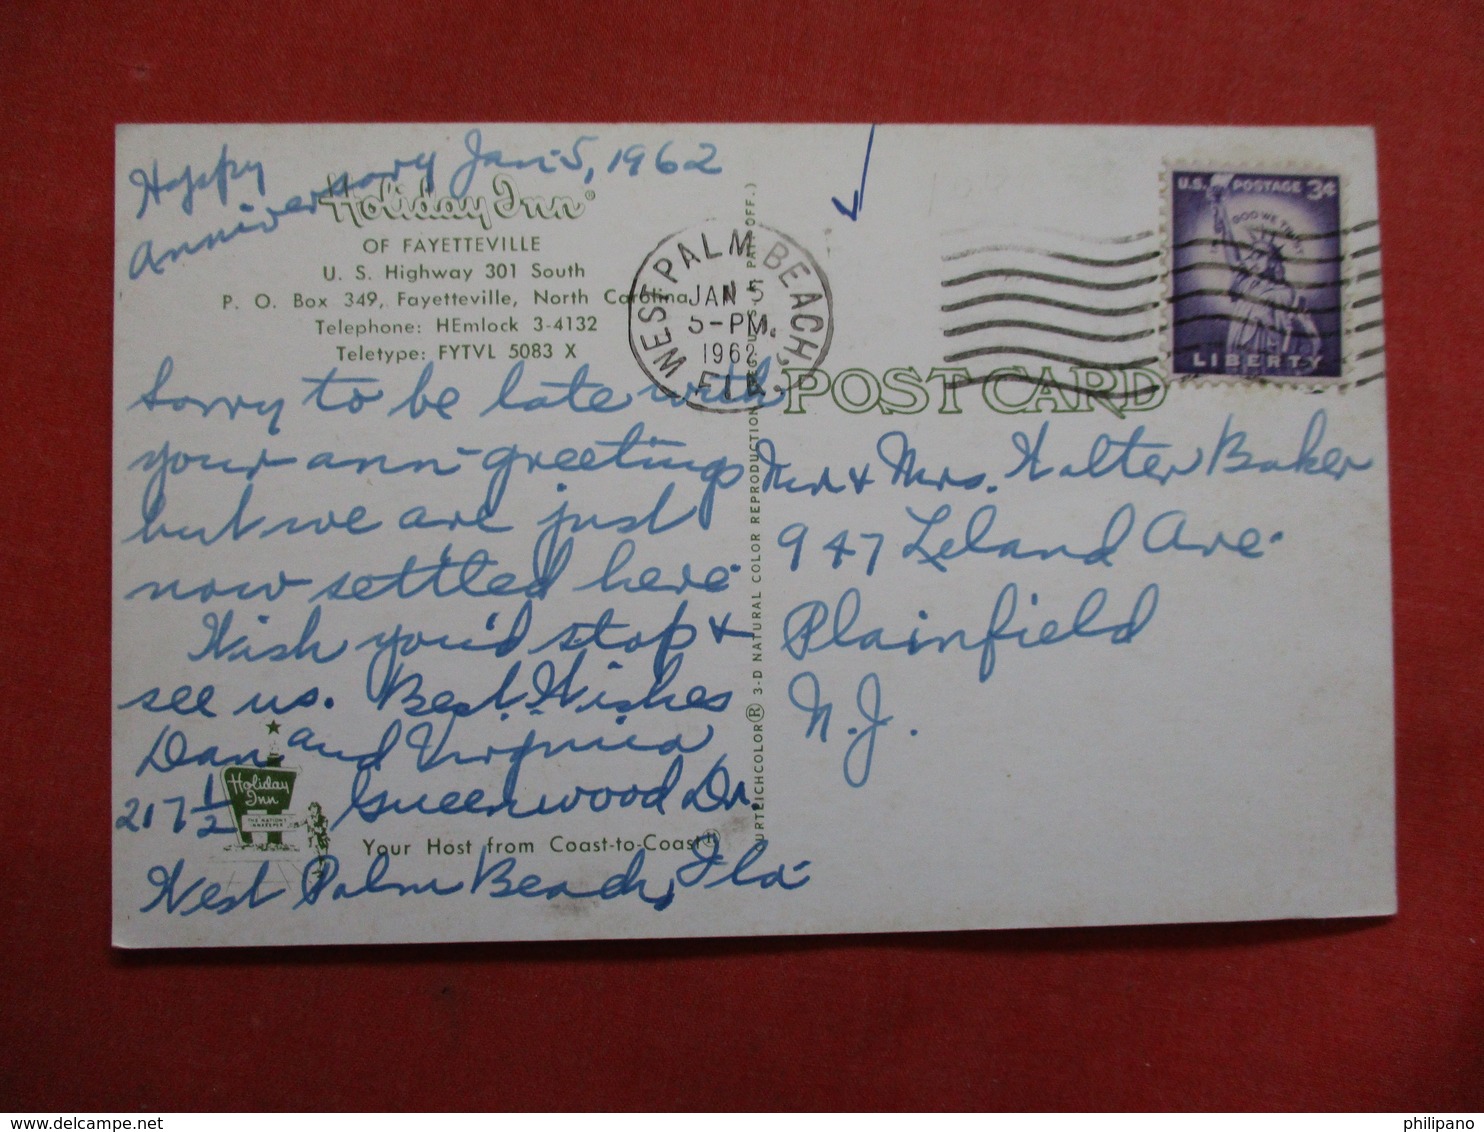 Happy
Anniversary Jan. 5, 1962
Holiday Inn®
OF FAYETTEVILLE
U. S. Highway 301 South
P. O. Box 349, Fayetteville, North Carolina
Telephone: HEmlock 3-4132
Teletype: FYTVL 5083 X
Sorry to be late with
your ann- greetings
but we are just
now settled here-
Wish you'd stop +
see us. Best Wishes
Dan and Virginia
217 1/2 Greenwood Dr.
West Palm Beach, Fla-
Holiday
Inn
THE NATION'S
INNKEEPER
Your Host from Coast-to-Coast®
CURTEICHCOLOR® 3-D NATURAL COLOR REPRODUCTION (REG. U.S.A. PAT. OFF.)
WEST PALM BEACH,
JAN 5
5-PM.
1962
FLA.
U.S. POSTAGE 3¢
IN GOD WE TRUST
LIBERTY
POST CARD
Mr + Mrs. Walter Baker
947 Leland Ave.
Plainfield
N.J.
philipano.com
Pour une meilleure visualisation de l'image, veuillez SVP vous connecter au site avant